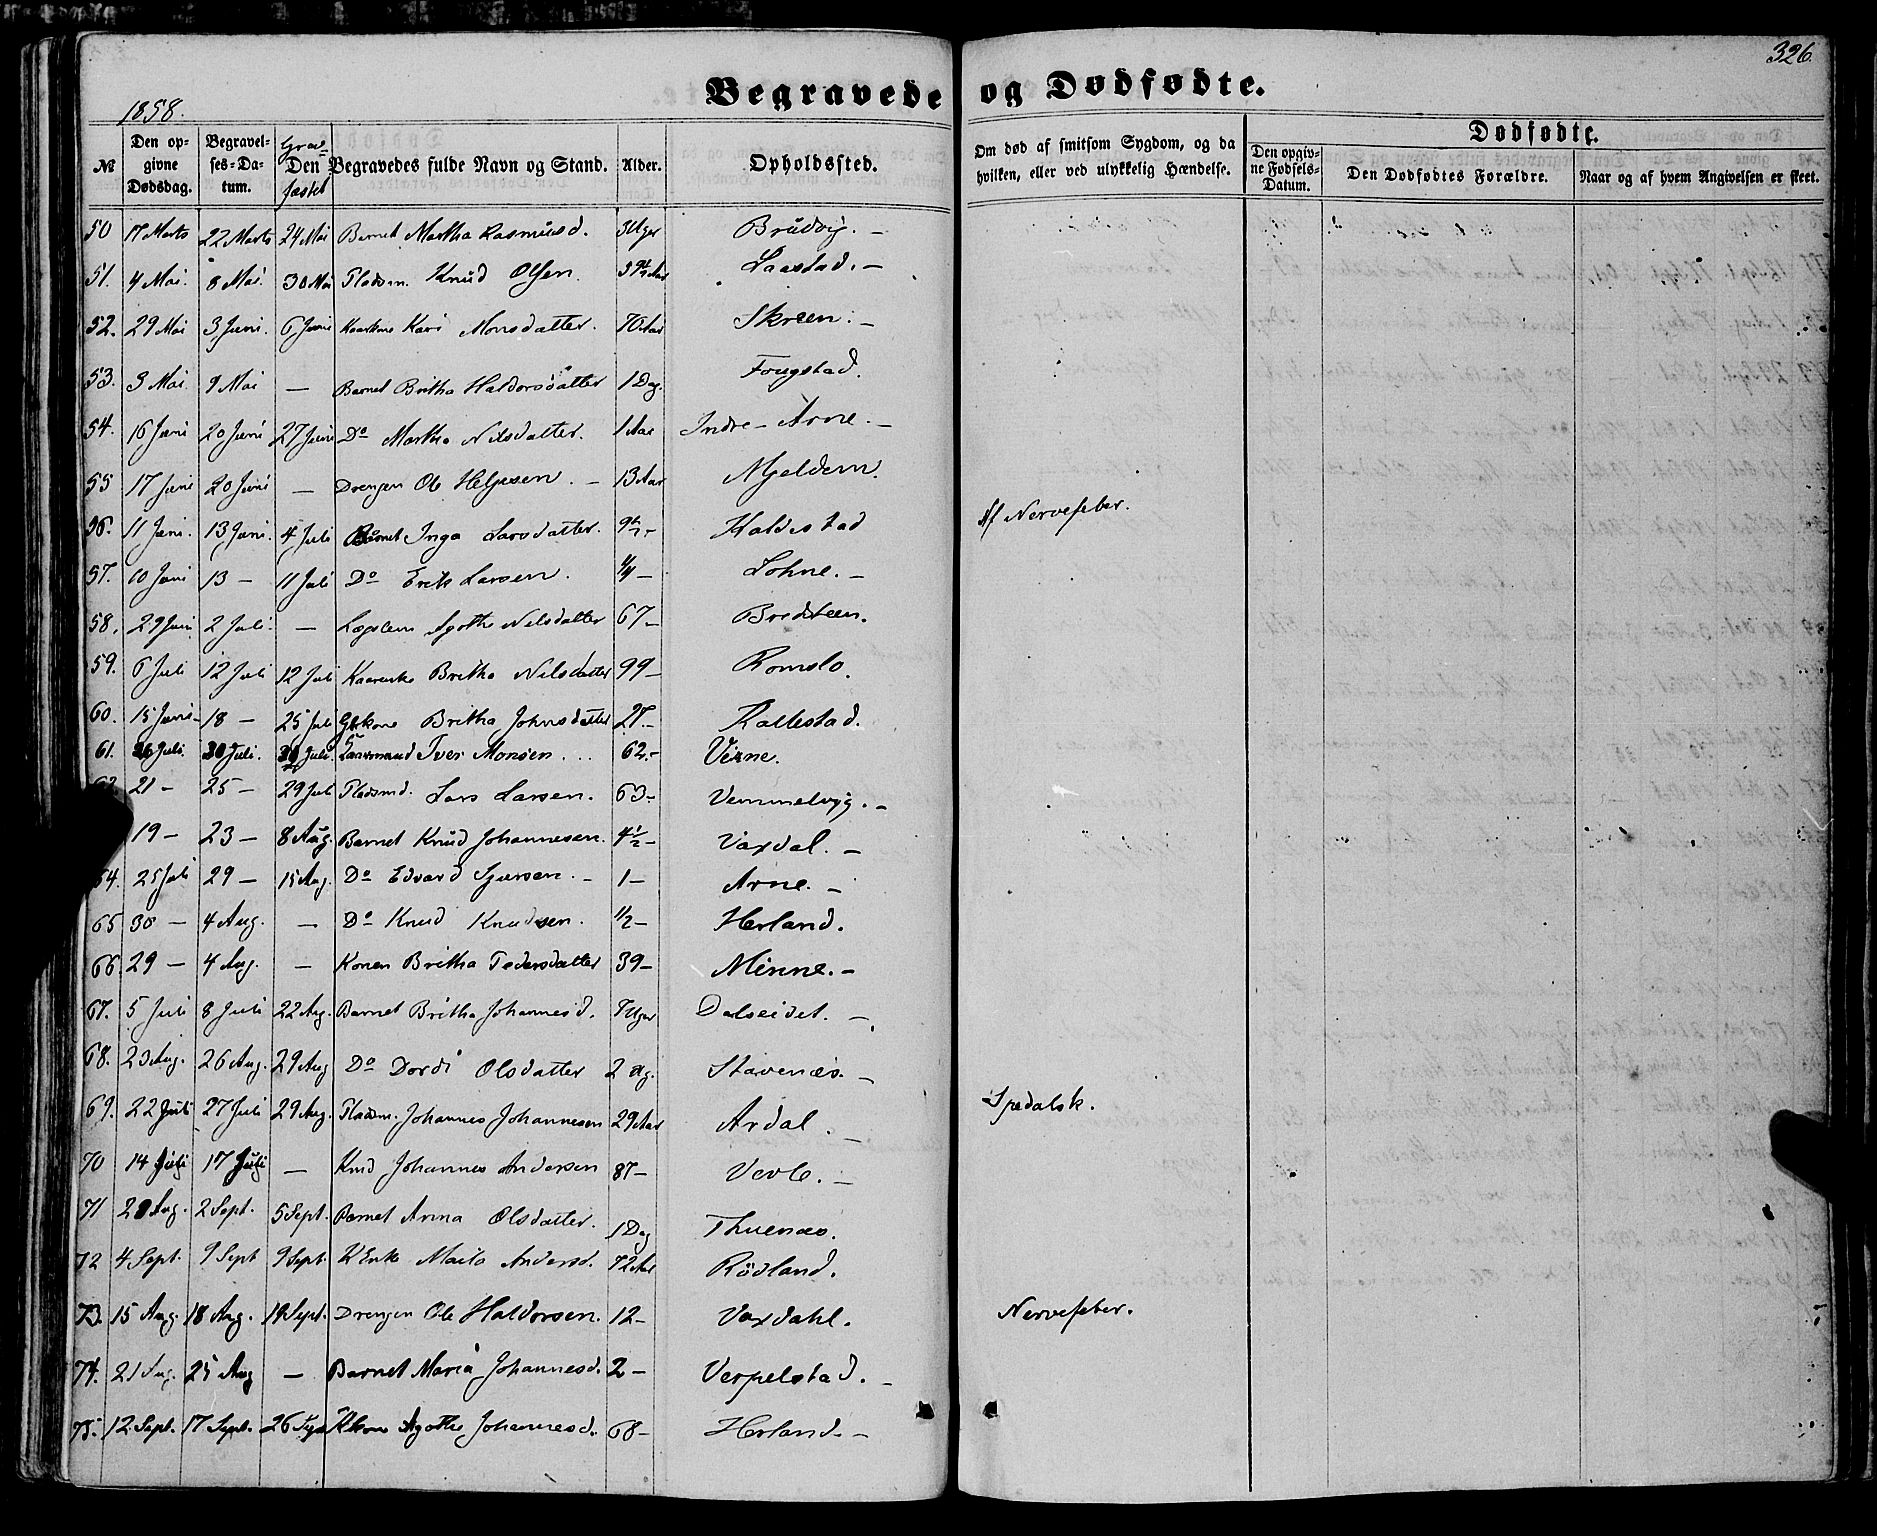 326.
1858.
Begravede og Dødfødte.
№
Den opgivne Dødsdag.
Begravelses-Datum.
Grav- fæstet
Den Begravedes fulde Navn og Stand.
Alder.
Opholdssted.
Om død af smitsom Sygdom, og da hvilken, eller ved ulykkelig Hændelse.
Dødfødte.
Den opgivne Fødsels-Datum.
Den Dødfødtes Forældre.
Naar og af hvem Angivelsen er skeet.
50 17 Marts 22 Marts 24 Mai Barnet Martha Rasmusd. 3 Uger Brudvig. –
51. 4 Mai. 8 Mai. 30 Mai Pladsm. Knud Olsen. Aar Laastad. –
52. 29 Mai 3 Juni. 6 Juni Kari Monsdatter. 70 Aar Skreen. –
53. 3 Mai 9 Mai — Barnet Britha Haldorsdatter 1 Dag. Fougstad.
54. 16 Juni 20 Juni 27 Juni Do Martha Nilsdatter. 1 Aar Indre – Arne. –
55 17 Juni 20 Juni — Drengen Ole Helgesen. – 13 Aar Mjeldem. Af Nervefeber.
56. 11 Juni. 13 Juni. 4 Juli Barnet Inga Larsdatter. Haldestad
57. 10 Juni 13 – 11 Juli Do Erik Larsen. Lohne. –
58. 29 Juni 2 Juli. — Lægdslem Agothe Nilsdatter 67 – Bredsteen.
59. 6 Juli 12 Juli 12 Juli Kaarenke Britha Nilsdatter 99 – Romslo.
60. 15 Juni – 18 – 25 Juli Gbkone Britha Johnsdatter 27. – Kallestad.
61. 26 Juli. 30 Juli. 30 Juli. Kaarmand Iver Monsen... 62. – Virne.
21 – 25 – 29 Juli Pladsmd. Lars Larsen. 63 – Vemmelvyg. –
19 – 23 – 8 Aug. Barnet Knud Johannesen. 4½ – Vaxdal. –
64. 25 Juli 29 – 15 Aug. Do Edvard Sjursen. – 1 – Arne. –
65 30 – 4 Aug. — Do Knud Knudsen. 1/2 – Herland.
66 29 – 4 Aug. — Konen Britha Pedersdatter 39 – Minne. –
67. 5 Juli 8 Juli 22 Aug. Barnet Britha Johannesd. 7 Uger Dalseidet. –
68. 23 Aug. 26 Aug. 29 Aug Do Dordi Olsdatter 2 Stavenæs. –
69. 22 Juli 27 Juli 29 Aug. Pladsm. Johannes Johannesen 29 Aar Ardal. – Spedalsk.
70 14 Juli 17 Juli — Johannes Andersen 87 – Vevle. –
71 28 Aug. 2 Sept. 5 Sept. Barnet Anna Olsdatter. 1 Dag Thuenæs.
72 4 Sept. 9 Sept 9 Sept. Enke Marta Andersd. 72 Aar Rödland.
73. 15 Aug. 18 Aug. 19 Sept. Drengen Ole Haldorsen. 12 – Vaxdahl. Nervefeber.
74. 21 Aug. 25 Aug — Barnet Maria Johannesd. 2 – Verpelstad. –
75. 12. Sept. 17 Sept. 26 Sept Agothe Johannesd. 68 – Herland. –